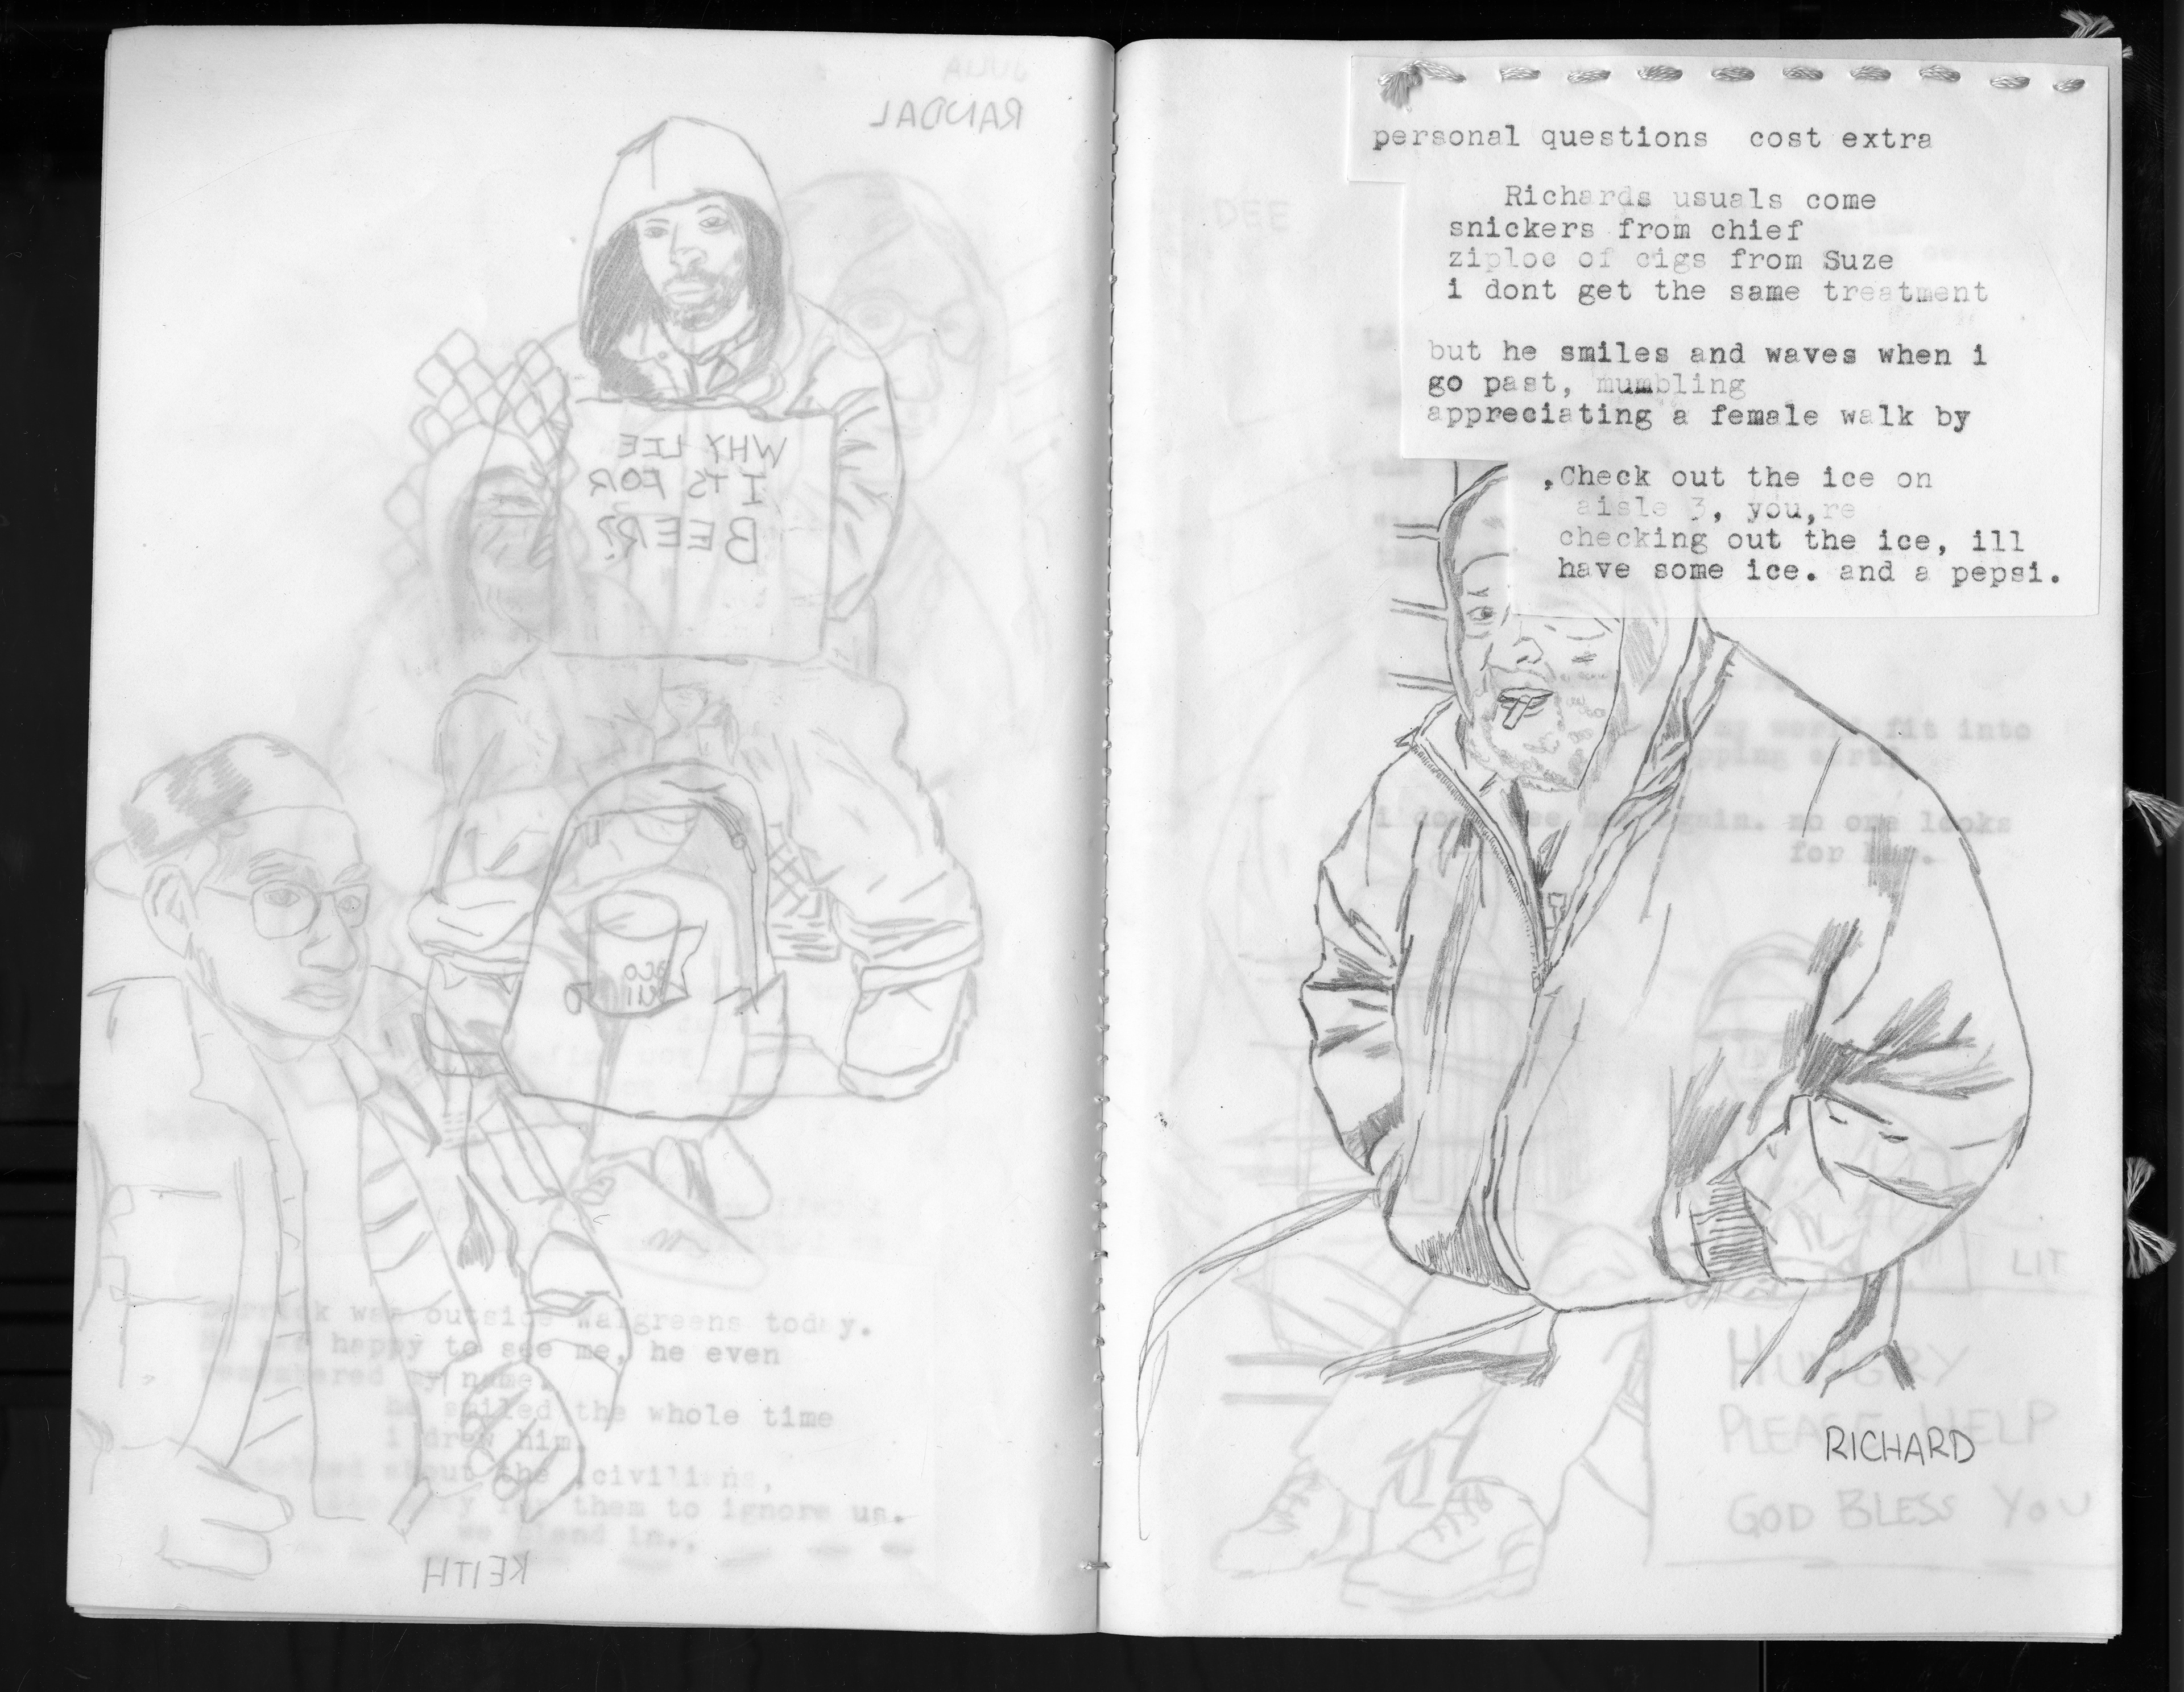 JULIA
RANDAL
WHY LIE
ITS FOR
BEER?
was outside walgreens today.
happy to see me, he even
my name.
he smiled the whole time
i drew him.
about the ,civilians,
for them to ignore us.
we blend in..
KEITH
personal questions cost extra
Richards usuals come
snickers from chief
ziploc of cigs from Suze
i dont get the same treatment
but he smiles and waves when i
go past, mumbling
appreciating a female walk by
,Check out the ice on
aisle 3, you,re
checking out the ice, ill
have some ice. and a pepsi.
DEE
my world fit into
i dont see her again. no one looks
for her.
LIT
HUNGRY
PLEASE HELP
RICHARD
GOD BLESS YOU